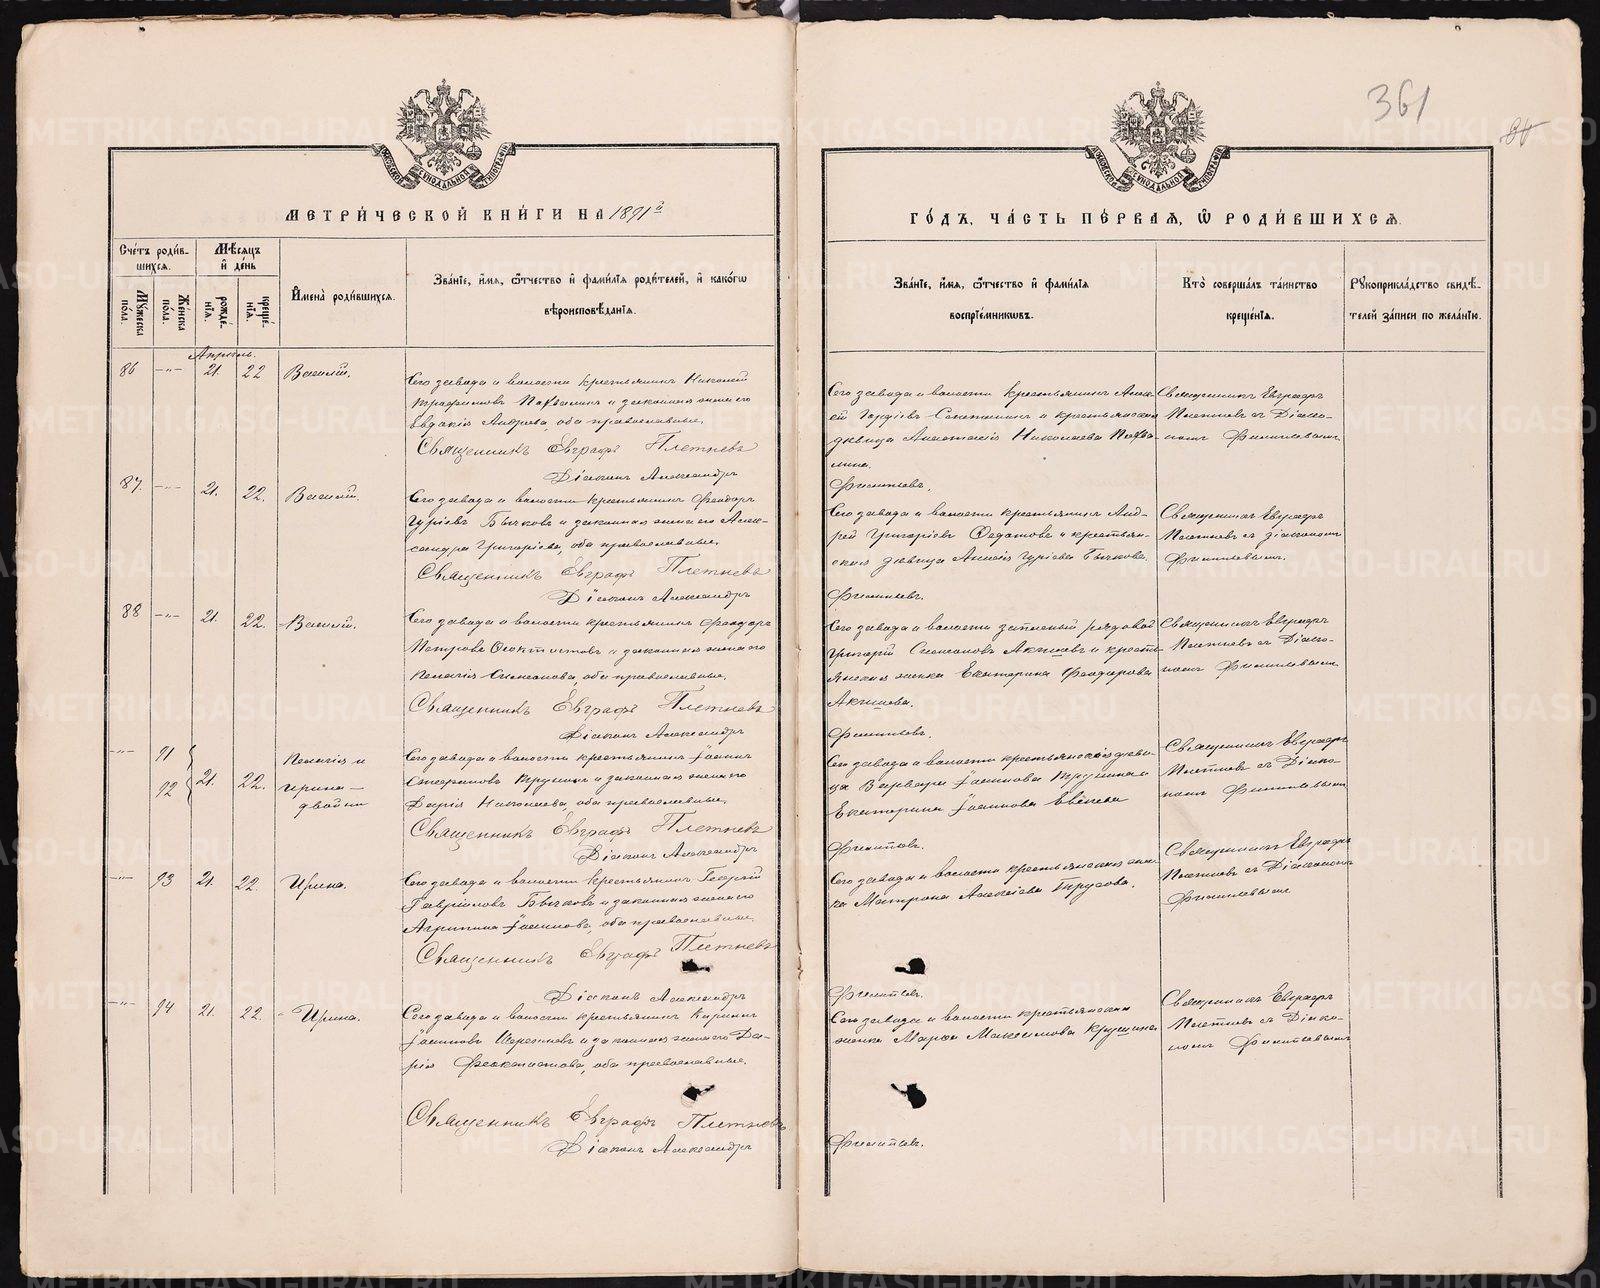 361
84
МЕТРИ́ЧЕСКОЙ КНИ́ГИ НА 1891 й
ГО́ДЪ, ЧА́СТЬ ПЕ́РВАЯ, Ѿ РОДИ́ВШИХСЯ.
Сче́тъ роди́в-
шихся.
Мѣ́сяцъ
и҆ де́нь
Му́жеска по́ла.
Же́нска по́ла.
рожде́нїя.
креще́нїя.
И҆мена̀ роди́вшихся.
Зва́нїе, и҆́мя, ѻ҆́тчество и҆ фами́лїя роди́телей, и҆ како́гѡ
вѣроисповѣ́данїя.
Зва́нїе, и҆́мя, ѻ҆́тчество и҆ фами́лїя
воспрїе́мникѡвъ.
Кто̀ соверша́лъ та́инство
креще́нїя.
Рꙋкоприкла́дство свидѣ́-
телей за́писи по жела́нїю.
Апрѣль.
86 —„— 21. 22 Василій.
Сего завода и волости крестьянинъ Николай
Трофимовъ и законная жена его
Евдокія Андреева, оба православные.
Священникъ Евграфъ Плетневъ
Діаконъ Александръ
Сего завода и волости крестьянинъ Алек-
сѣй Гордѣевъ и крестьянская
дѣвица Анастасія Николаева
лина.
Филиппьевъ.
Священникъ Евграфъ
Плетневъ съ Діако-
номъ Филиппьевымъ.
87. —„— 21. 22. Василій.
Сего завода и волости крестьянинъ Феодоръ
Гурiевъ Бычковъ и законная жена его Алек-
сандра Григоріева, оба православные.
Священникъ Евграфъ Плетневъ
Діаконъ Александръ
Сего завода и волости крестьянинъ Анд-
рей Григоріевъ Федотовъ и крестьян-
ская дѣвица Анисія Гурiева Бычкова.
Филиппьевъ.
Священникъ Евграфъ
Плетневъ съ діакономъ
Филиппьевымъ.
88 —„— 21. 22. Василій.
Сего завода и волости крестьянинъ Феодоръ
Петровъ и законная жена его
Пелагія Симеонова, оба православные.
Священникъ Евграфъ Плетневъ
Діаконъ Александръ
Сего завода и волости запасный рядовой
Григорій Симеоновъ Акишевъ и кресть-
янская женка Екатерина Феодорова
Акишева.
Филиппьевъ.
Священникъ Евграфъ
Плетневъ съ Діако-
номъ Филиппьевымъ
—„— 91 92 21. 22. Пелагія и
Ирина —
двойни
Сего завода и волости крестьянинъ Іоаннъ
Стефановъ и законная жена его
Дарія Николаева, оба православные.
Священникъ Евграфъ Плетневъ
Діаконъ Александръ
Сего завода и волости крестьянскія дѣви-
ца Варвара Іоаннова и
Екатерина Іоаннова
Филиппьевъ.
Священникъ Евграфъ
Плетневъ съ Діако-
номъ Филиппьевымъ
—„— 93 21. 22. Ирина.
Сего завода и волости крестьянинъ Георгій
Гавріиловъ Бычковъ и законная жена его
Агрипина Іоаннова, оба православные.
Священникъ Евграфъ Плетневъ
Діаконъ Александръ
Сего завода и волости крестьянская жен-
ка Матрона Алексіева Трусова.
Филиппьевъ.
Священникъ Евграфъ
Плетневъ съ Діакономъ
Филиппьевымъ
—„— 94 21. 22. Ирина.
Сего завода и волости крестьянинъ Кириллъ
Іоанновъ и законная жена его Да-
рія Феоктистова, оба православные.
Священникъ Евграфъ Плетневъ
Діаконъ Александръ
Сего завода и волости крестьянская
женка Марѳа Максимова
Филиппьевъ.
Священникъ Евграфъ
Плетневъ съ Діако-
номъ Филиппьевымъ
METRIKI.GASO-URAL.RU